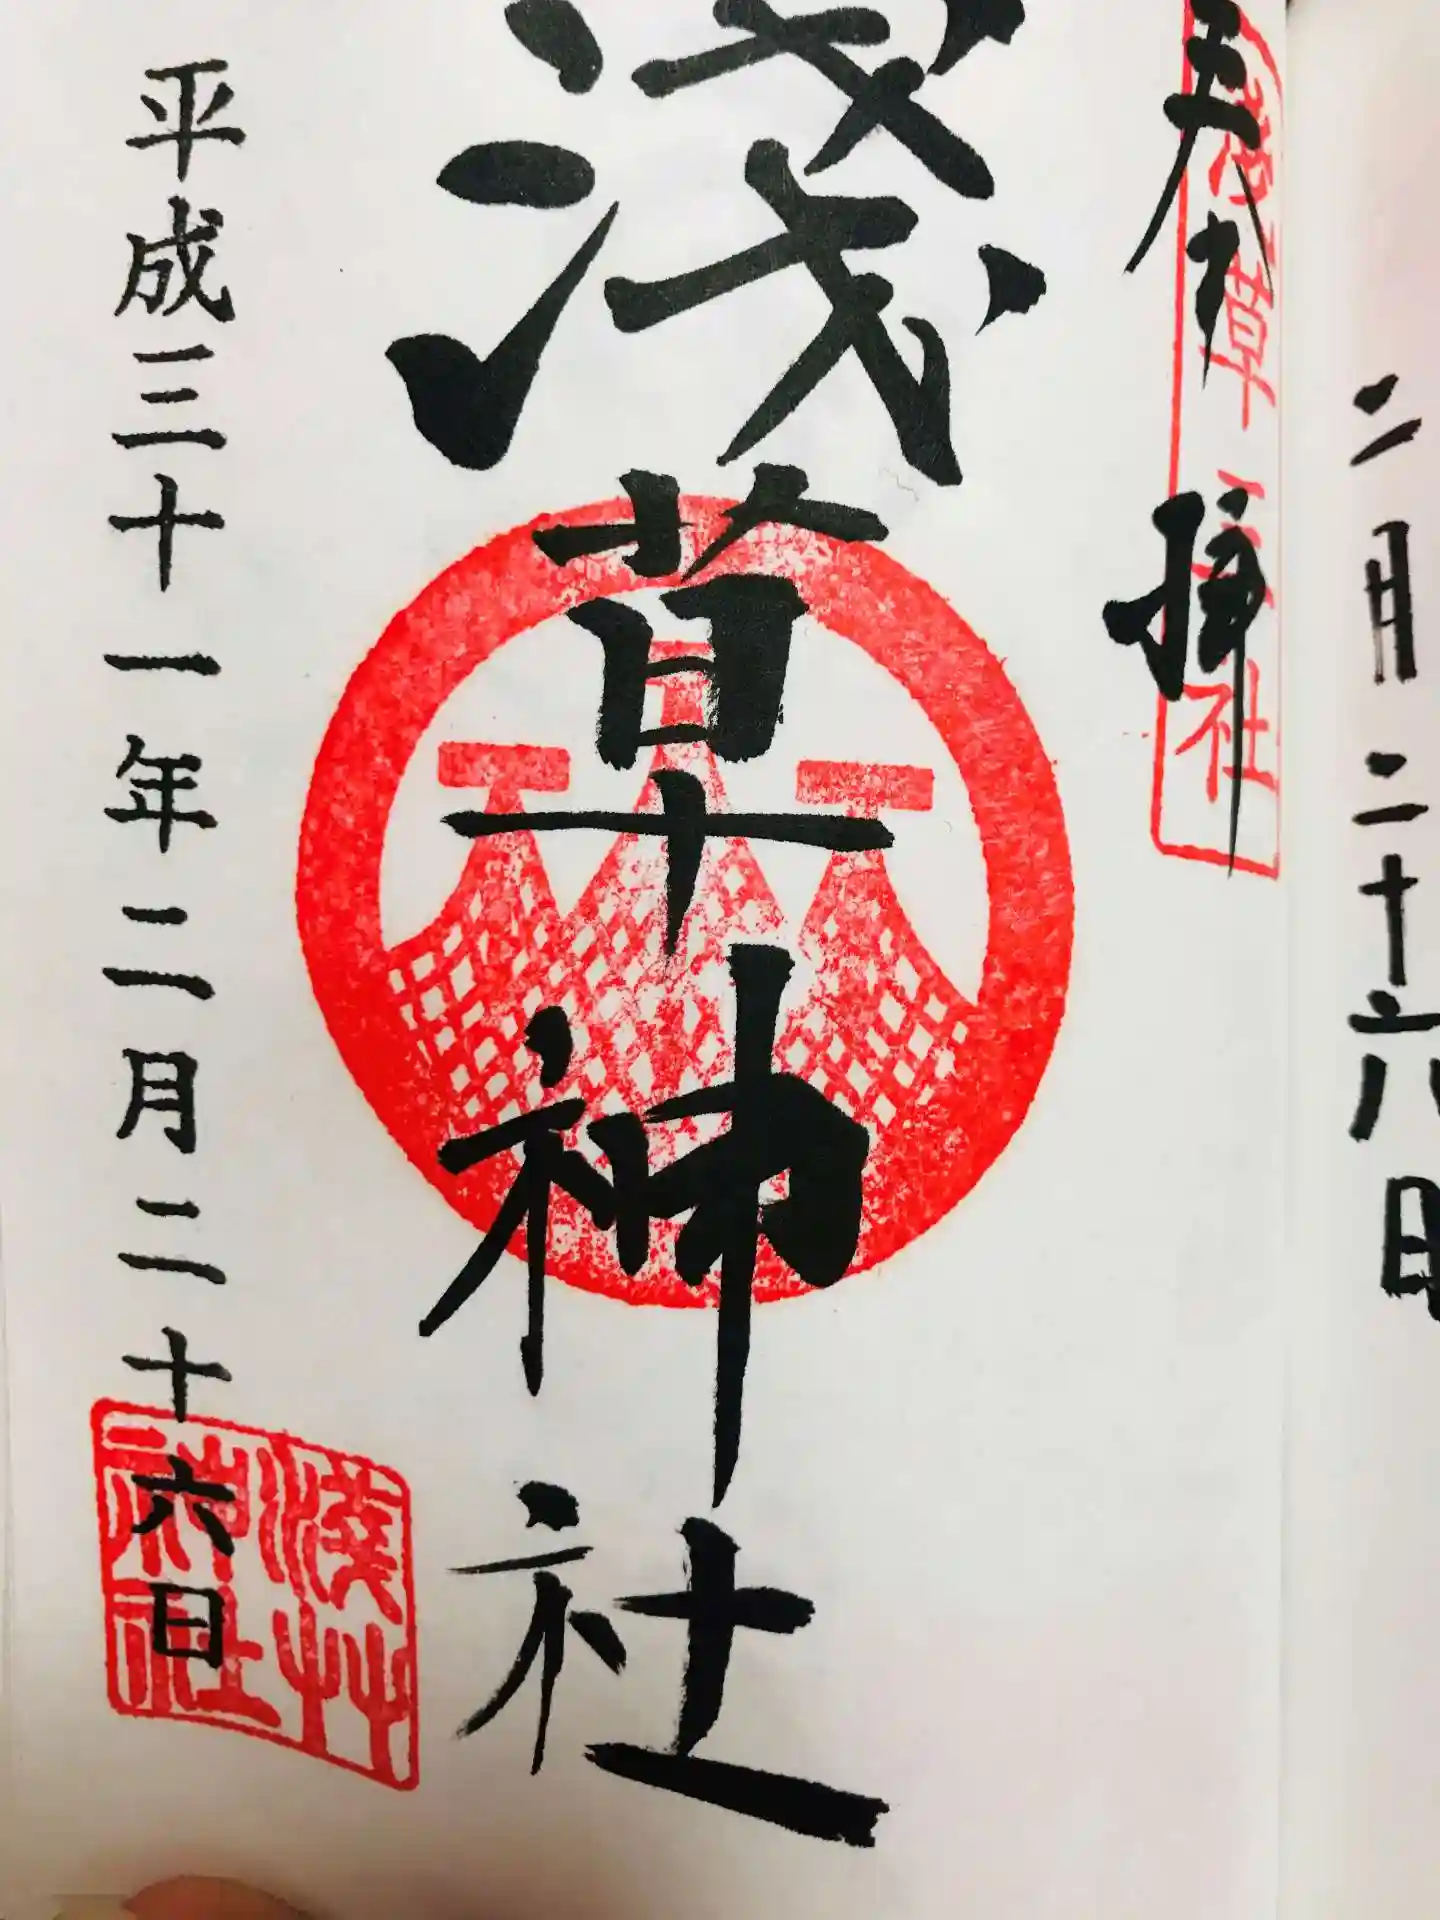 二月二十六日
奉拝
浅草三社
淺草神社
平成三十一年二月二十六日
淺草神社